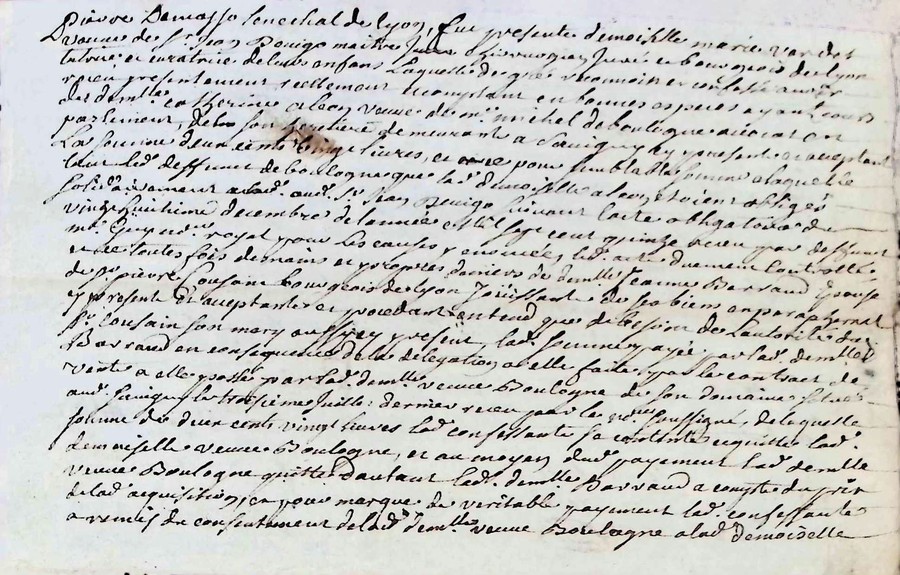 Pierre Demasso Senechal de Lyon, fut presente demoiselle marie
veuve de Sr Jean Bouigo maitre Juré et bourgeois de Lyon
tutrice et curatrice de leurs enfans laquelle de gré reconnoit et confesse avoir
receu presentement reellement et comptant en bonnes especes ayant cours
de demlle catherine veuve de mr michel de boulogne avocat en
parlement, de son demeurant a Savigny cy presente et acceptant
La somme de deux cents vingt livres, et ce pour semblable somme a laquelle
led. deffunt de boulogne que lad. demoiselle etoient obligés
solidairement aud. Sr Jean Bouigo suivant l'acte obligatoire du
vingt huitieme decembre de l'année mil sept cent quinze receu par deffunt
me royal pour les causes y enoncées, led. acte duement controllé
et ce toutes fois des mains et propres deniers de demlle Jeanne Barraud Epouse
de sr pierre Cousain bourgeois de Lyon Joüissant de ses biens paraphernaux
cy presente et acceptante et procedant entend que de besoin de l'autorité dud.
Sr Cousain son mary aussy cy present, lad. somme payée par lad. demlle
Barraud en consequence de la delegation a elle faite par le contract de
vente a elle passé par lad. demlle veuve Boulogne de son domaine situé
aud. Savigny le troisieme Juillet dernier receu par le nore soussigné, de laquelle
somme de deux cents vingt livres lad. confessante se contente et quitte lad.
demoiselle veuve Boulogne, et au moyen dud. payement lad. demlle
veuve Boulogne quitte d'autant lad. demlle Barraud a compte du prix
de lad. acquisition, et pour marque de veritable payement lad. confessante
a remis du consentement de lad. demlle veuve Boulogne a lad. demoiselle